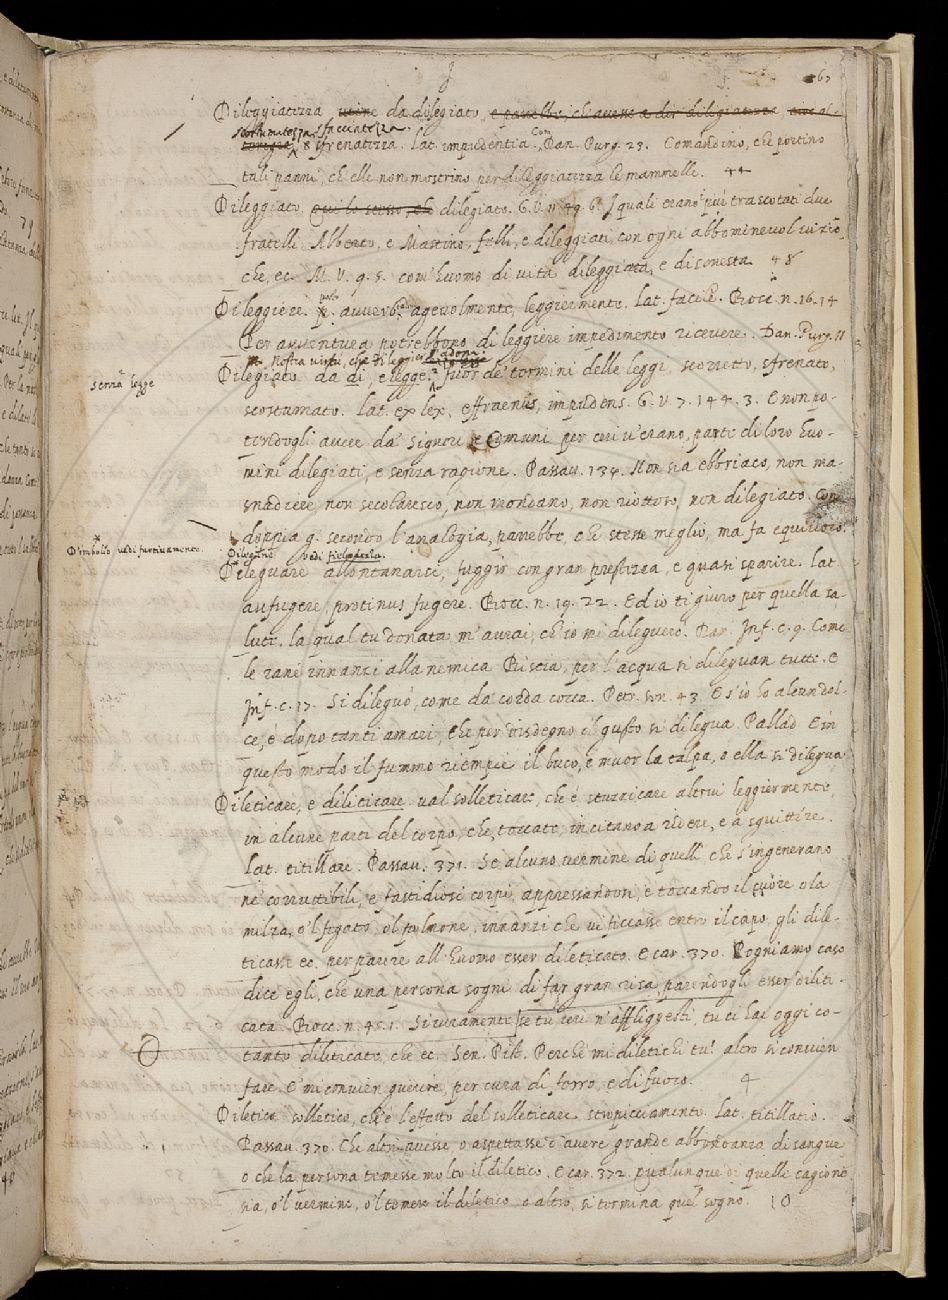 367
Dileggiatezza viene da dilegiato, e parrebbe, ch'avesse a dir dilegiatezza
scostumatezza, sfacciatezza
e sfrenatezza. Lat. impudentia. Com. Dan. Purg. 23. Comandino, che portino
tali panni, ch'elle non mostrino per dileggiatezza le mammelle. 44
Dileggiato. Quello stesso, che dilegiato. G. V. n. 49. 6. I quali erano più trascotati due
fratelli Alberto, e Mastino, felli, e dileggiati, con ogni abbominevol vizio,
che, ec. M. V. 9. 5. com'huomo di vita dileggiata, e disonesta. 48
Dileggiere. posto avverb. agevolmente, leggiermente. Lat. facile. Bocc. n. 16. 14
Per avventura potrebbono di leggiere impedimento ricevere. Dan. Purg. 11
nostra virtù, che di leggier s'adona.
senza legge
Dilegiato da di, e legge. fuor de' termini delle leggi, scorretto, sfrenato,
scostumato. Lat. ex lex, effraenus, impudens. G. V. 7. 144. 3. E non po-
tendogli avere da' signori e Comuni per cui v'erano, parte di loro huo-
mini dilegiati, e senza ragione. Passav. 134. Non sia ebbriaco, non ma-
snadiere non secolaresco, non mondano, non riottoso, non dilegiato. Con
doppia g. secondo l'analogia, parrebbe, che stesse meglio, ma fa equivoco.
Dimbolio vedi furtivamente.
Dilegine vedi
Dileguare allontanarsi, fuggir con gran prestezza, e quasi sparire. Lat.
aufugere, protinus fugere. Bocc. n. 19. 22. Ed io ti giuro per quella sa-
lute, la qual tu donata m'avrai, ch'io mi dileguerò. Dan. Inf. c. 9. Come
le rane innanzi alla nemica Biscia, per l'acqua si dileguan tutte. E
Inf. c. 17. Si dileguò, come da corda cocca. Petr. son. 43. E s'io ho alcun dol-
ce, è dopo tanti amari, Che per disdegno il gusto si dilegua. Pallad. E in
questo modo il fummo riempie il buco, e muor la talpa, o ella si dilegua.
Dileticare, e diliticare val solleticare, che è stuzzicare altrui leggiermente,
in alcune parti del corpo, che, toccate, incitano a ridere, e a sguittire.
Lat. titillare. Passav. 371. Se alcuno vermine di quelli che s'ingenerano
ne' corruttibili, e fastidiosi corpi, appressandosi, e toccando il cuore o la
milza, o'l fegato, o'l polmone, innanzi che si ficcasse entro il capo, gli dile-
ticasse ec. per parere all'huomo esser dileticato. E car. 370. Pogniamo caso
dice egli, che una persona sogni di far gran risa, parendogli esser diliti-
cata. Bocc. n. 45. 1. Sicuramente se tu ieri n'affliggesti, tu ci hai oggi co-
tanto diliticate, che ec. Sen. Pist. Perchè mi diletichi tu? altro si convien
fare, e' mi convien guerire, per cura di ferro, e di fuoco. 4
Diletico solletico, ch'è l'effetto del solleticare. stropicciamento. Lat. titillatio.
Passav. 370. Che altri avesse, o aspettasse d'avere grande abbondanza di sangue
o che la persona temesse molto il diletico. E car. 372. qualunque di quelle cagione
sia, o'l vermine, o'l temere il diletico o altro, si termina quel sogno. 10